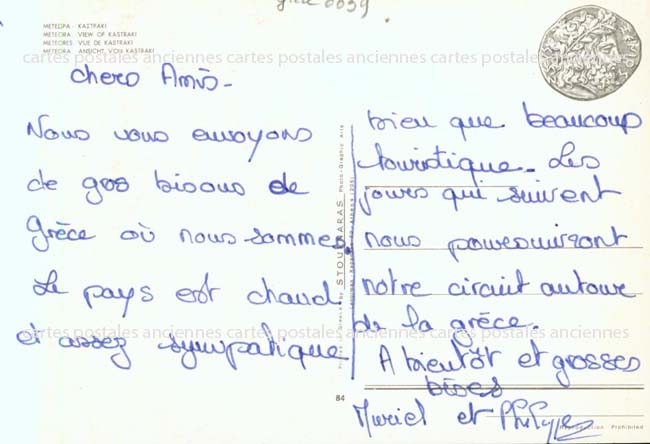 grèce 0039
METEΩPA - ΚΑΣΤΡΑΚΙ
METEORA. VIEW OF KASTRAKI
METEORES. VUE DE KASTRAKI
METEORA. ANSICHT VON KASTRAKI
cartes postales anciennes cartes postales anciennes cartes postales anciennes
chers Amis -
Nous vous envoyons
de gros bisous de
Grèce où nous sommes.
Le pays est chaud
et assez sympatique
cartes postales anciennes cartes postales anciennes cartes postales anciennes
STOURNARAS Photo-Graphic Arts
84
bien que beaucoup
touristique. Les
jours qui suivent
nous poursuivront
notre circuit autour
de la grèce.
A bientôt et grosses
bises
Muriel et Philippe
Reproduction Prohibited